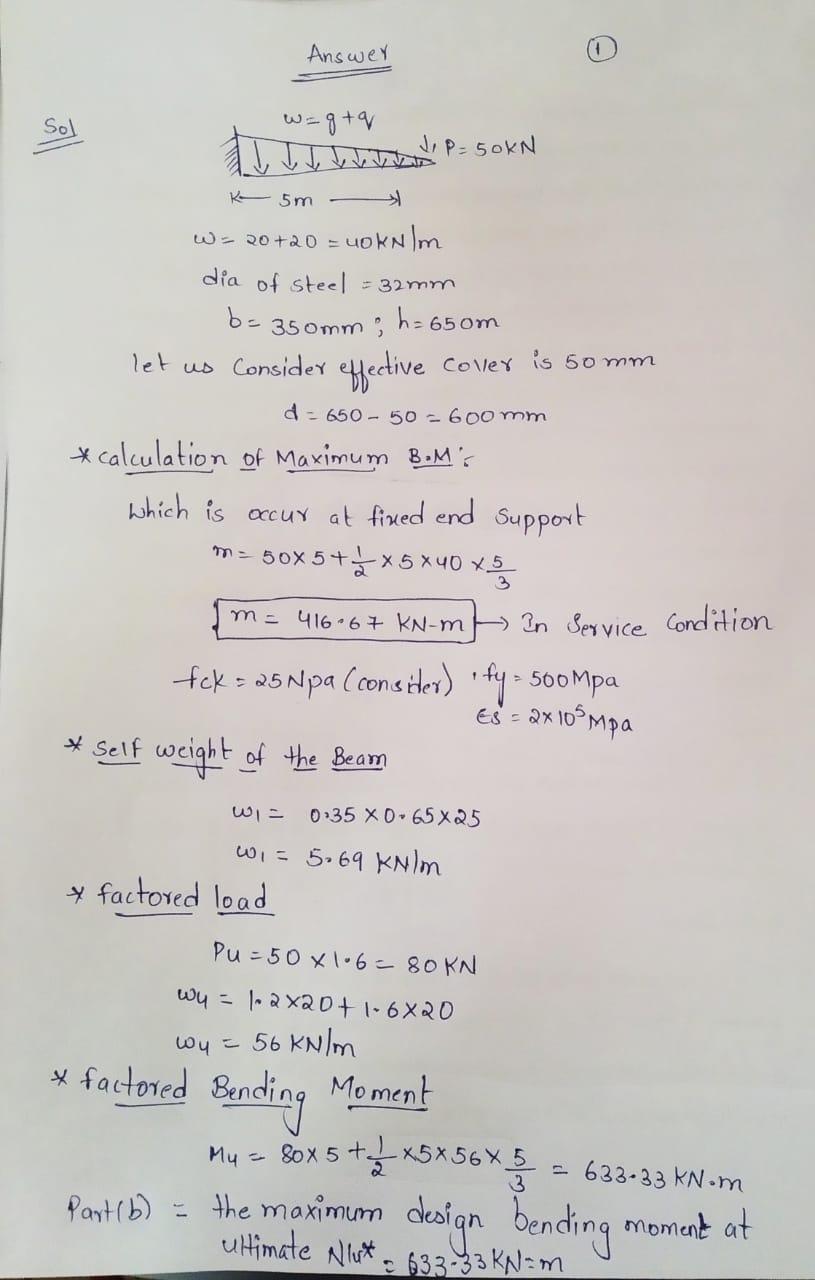 Answer
①
Sol
w=g+q
P=50KN
5m
w=20+20=40KN/m
dia of steel =32mm
b=350mm; h=650m
let us Consider effective Cover is 50mm
d=650-50=600mm
* calculation of Maximum B.M:-
Which is occur at fixed end Support
m=50×5+1/2×5×40×5/3
m= 416.67 KN-m → In Service Condition
fck=25Npa (consider), fy=500Mpa
Es=2×10⁵Mpa
* Self weight of the Beam
w1= 0.35×0.65×25
w1= 5.69 KN/m
* factored load
Pu=50×1.6=80KN
wu=1.2×20+1.6×20
wu=56 KN/m
* factored Bending Moment
Mu=80×5+1/2×5×56×5/3 = 633.33 KN.m
Part(b) = the maximum design bending moment at
ultimate = 633.33KN=m